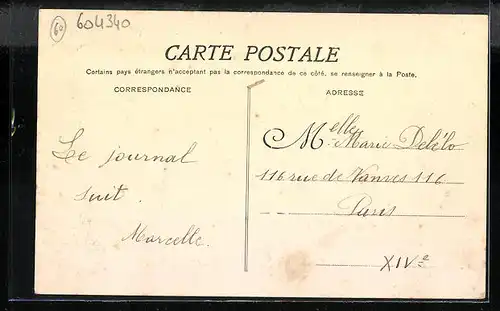 6e 604340
CARTE POSTALE
Certains pays étrangers n'acceptant pas la correspondance de ce côté, se renseigner à la Poste.
CORRESPONDANCE
ADRESSE
Le journal
suit.
Marcelle.
Melle Marie Delélo
116 rue de Vanves 116
Paris
XIVe